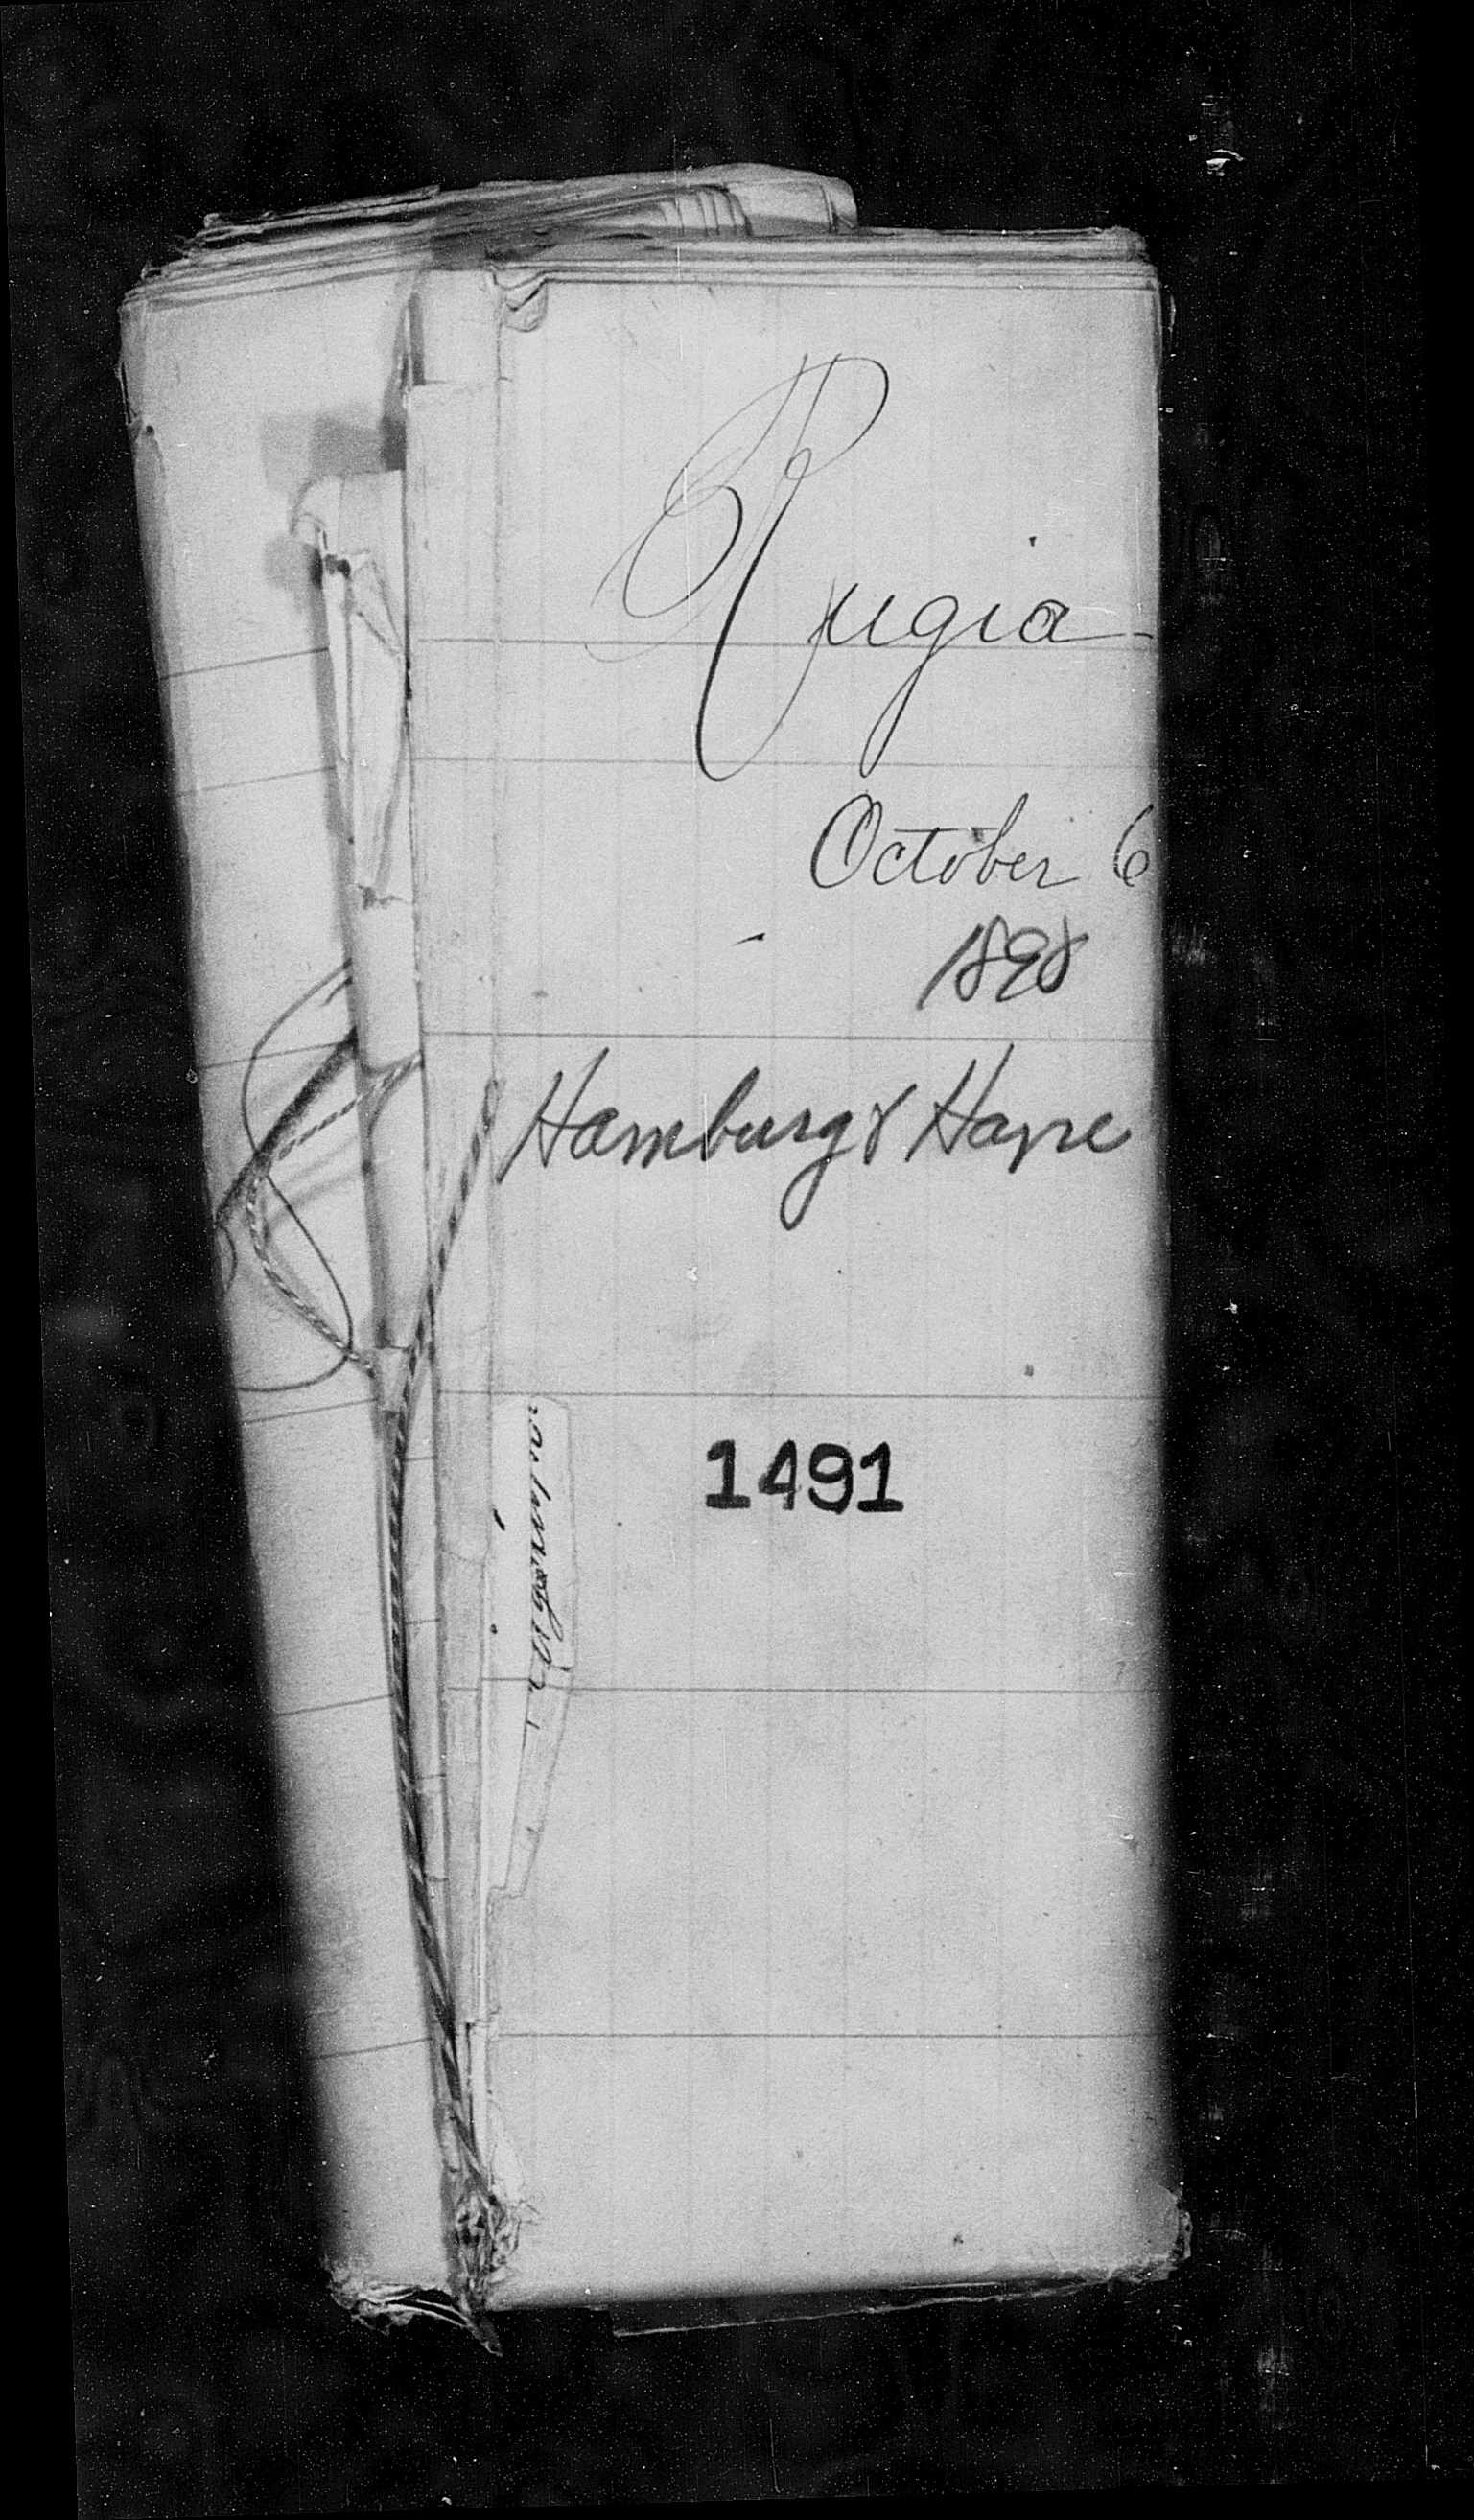 Rugia
October 6
1898
Hamburg & Havre
1491